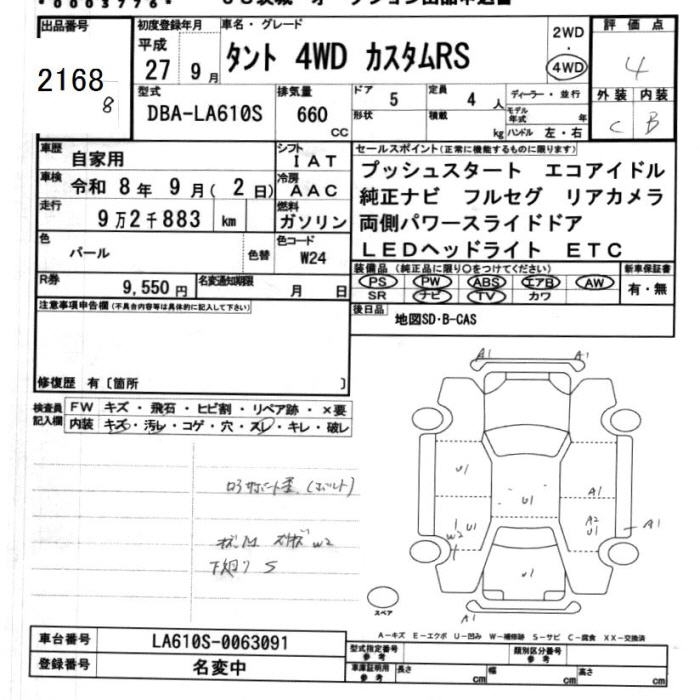 出品番号
2168
8
初度登録年月
平成
27 9月
車名・グレード
タント 4WD カスタムRS
2WD
・
4WD
評価点
4
外装 内装
C B
型式
DBA-LA610S
排気量
660
CC
ドア 5
形状
定員 4 人
積載 kg
ディーラー・並行
モデル年式 年
ハンドル 左・右
車歴
自家用
シフト
IAT
車検
令和 8年 9月(2日)
冷房
AAC
走行
9万2千883 km
燃料
ガソリン
色
パール
色替
色コード
W24
R券
9,550円
名変通知期限
月 日
セールスポイント(正常に機能するものに限ります)
プッシュスタート エコアイドル
純正ナビ フルセグ リアカメラ
両側パワースライドドア
LEDヘッドライト ETC
装備品(純正品に限り○をつけてください)
PS PW ABS エアB AW
SR ナビ TV カワ
新車保証書
有・無
後日品
地図SD・B-CAS
注意事項申告欄(不具合内容等は具体的に記入して下さい)
修復歴 有〔箇所 〕
検査員記入欄
FW キズ・飛石・ヒビ割・リペア跡・×要
内装 キズ・汚レ・コゲ・穴・スレ・キレ・破レ
W2
下廻り S
A1 A1
U1
A1
U1
A2
U1
A1
U1
W2
U1
A1
スペア
A-キズ E-エクボ U-凹み W-補修跡 S-サビ C-腐食 XX-交換済
車台番号
LA610S-0063091
登録番号
名変中
型式指定番号
参考
類別区分番号
参考
車庫証明用
参考
長さ cm
幅 cm
高さ cm